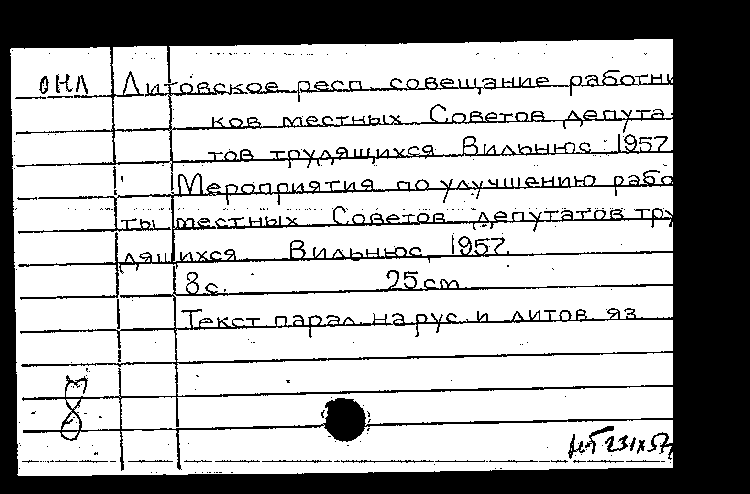 ОНЛ Литовское респ. совещание работни
ков местных Советов депута-
тов трудящихся Вильнюс 1957
Мероприятия по улучшению рабо
ты местных Советов депутатов тру
дящихся Вильнюс, 1957.
8 с. 25 cm
Текст парал. на рус и литов яз.